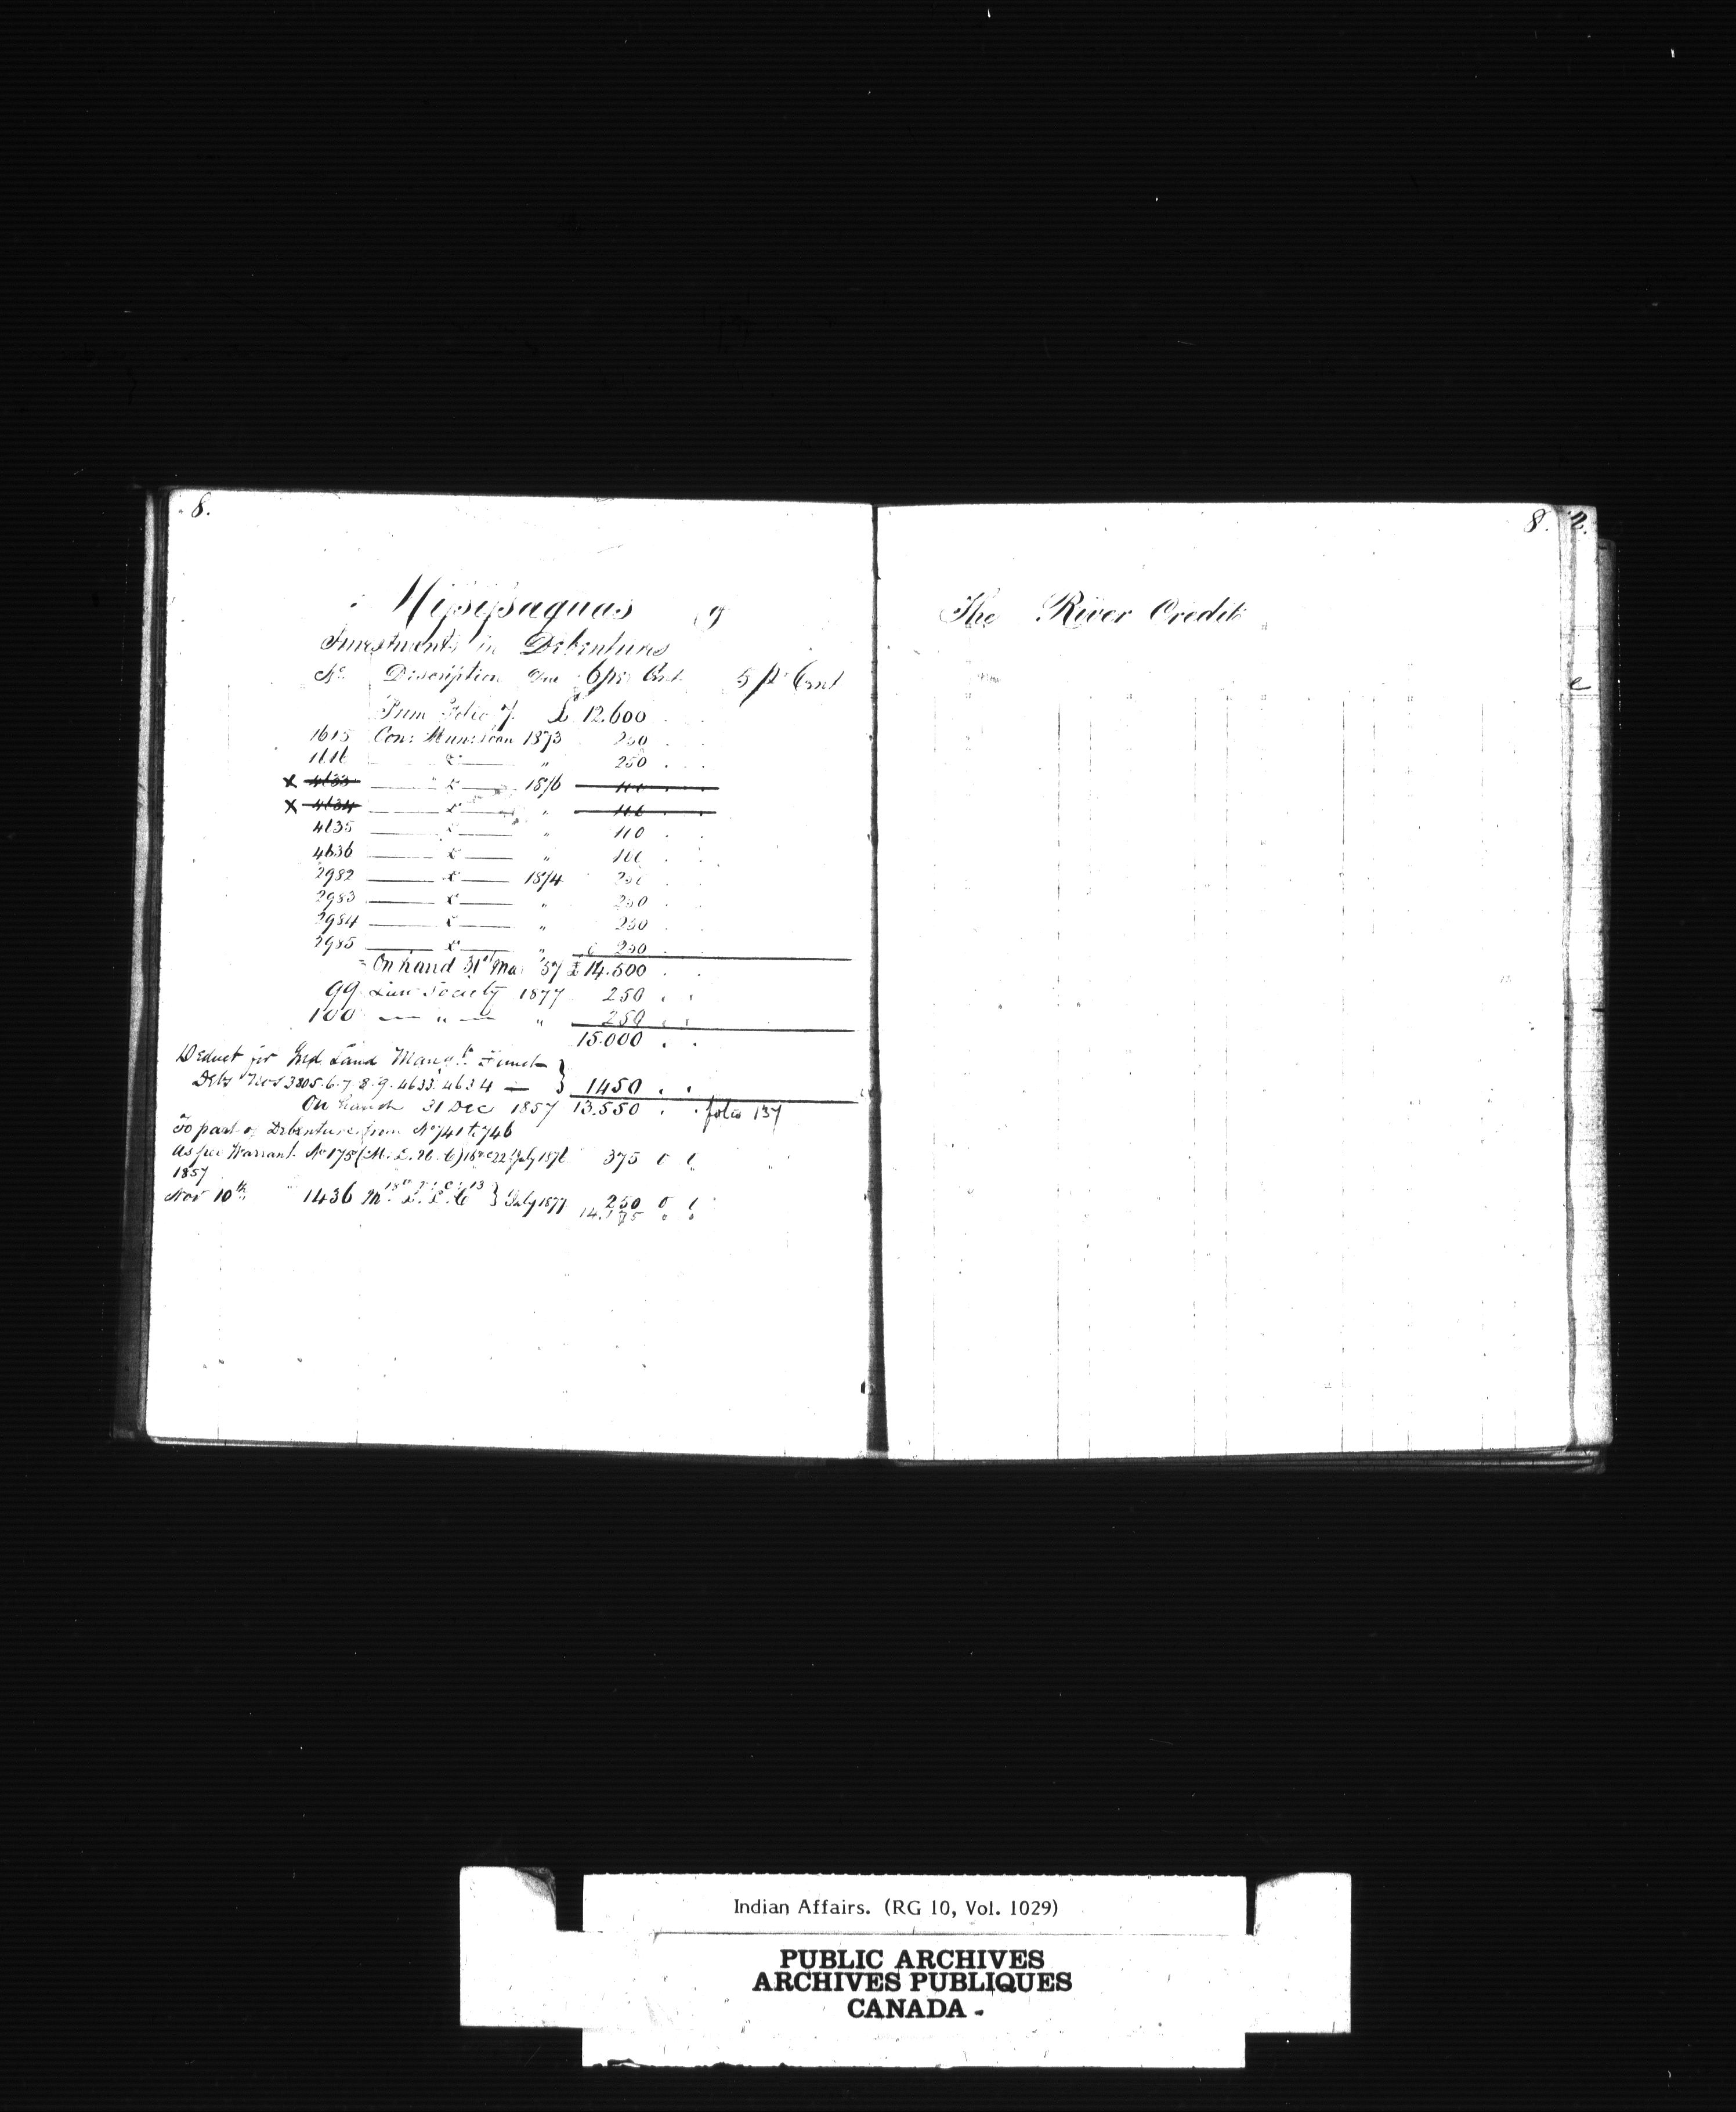 8.
Missisaguas of
Investments in Debentures
No. Description Due 6 pr Cent 5 pr Cent
From Folio 7. £ 12.600
1615 Con: Mun: Loan 1873 250
1616 " 250
x 4633 1876 100
x 4634 " 100
4635 " 100
4636 " 100
2982 1874 250
2983 " 250
2984 " 250
2985 " £ 250
On hand 31st Mar '57 £ 14.500
99 Law Society 1877 250
100 — " — " 250
15.000
Deduct for Ind Land Mangt. Fund
Debs Nos 3805.6.7.8.9.4633.4634 — } 1450
On hand 31 Dec 1857 13.550 folio 137
To part of Debentures from No 741 to 746
As per Warrant No 175 July 1876 375 0 0
1857
Nov 10th 1436 } July 1877 250 0 0
14.175
8.
The River Credit
Indian Affairs. (RG 10, Vol. 1029)
PUBLIC ARCHIVES
ARCHIVES PUBLIQUES
CANADA